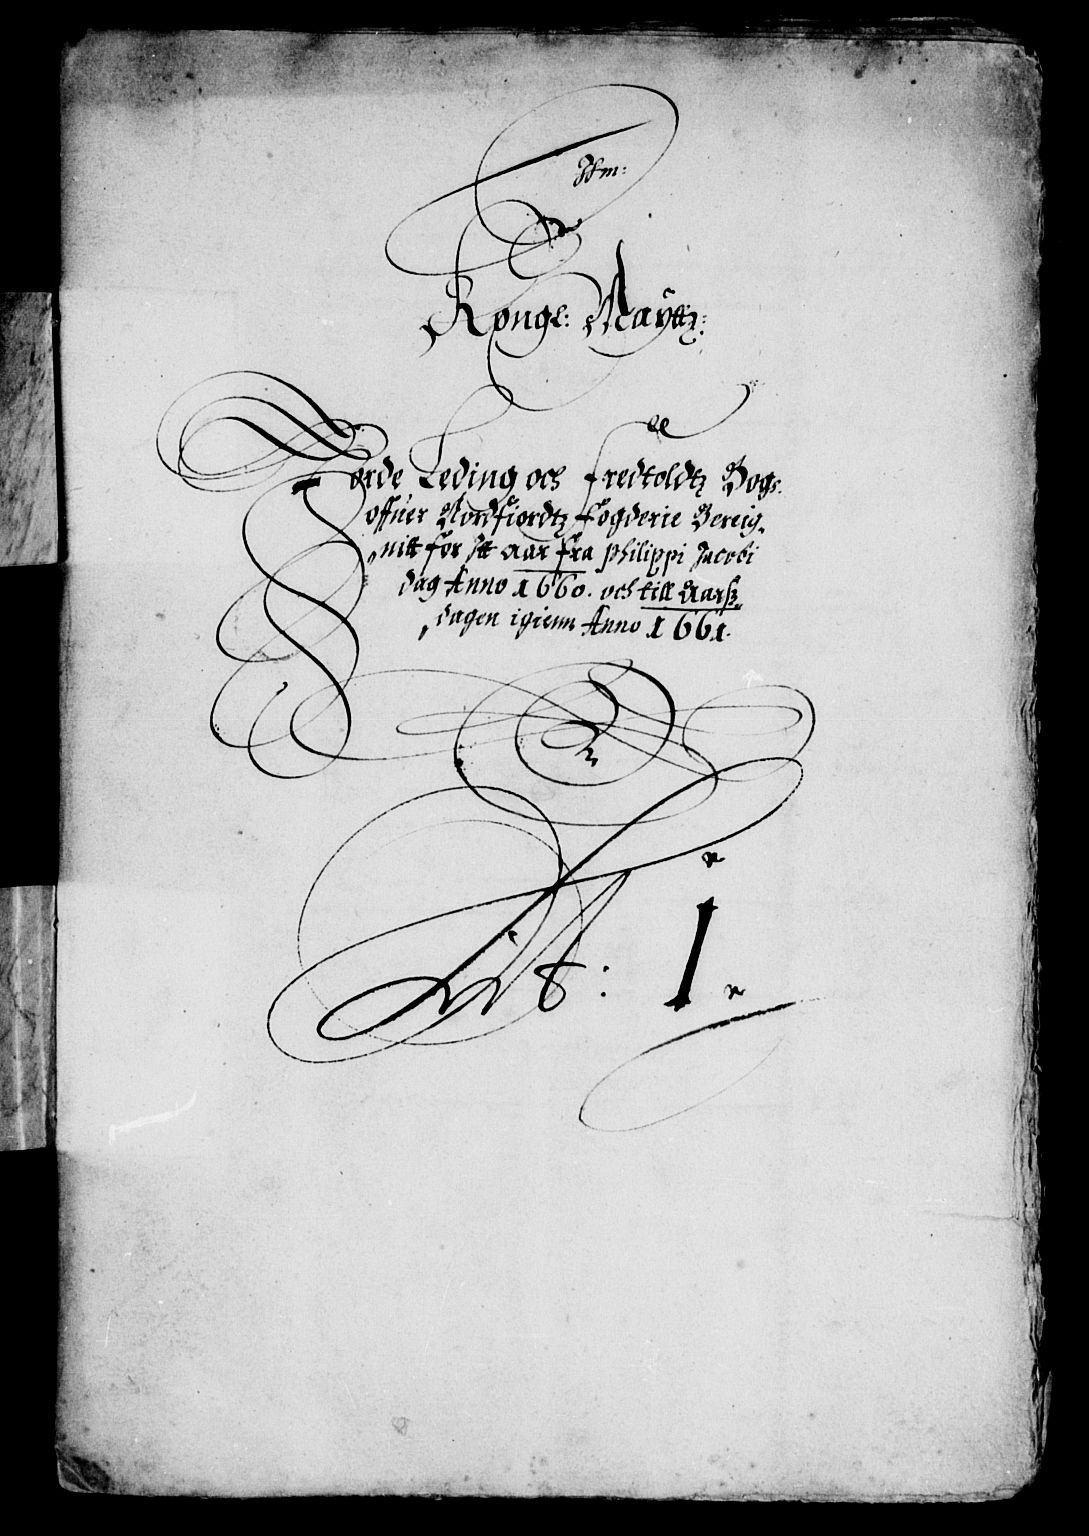 Kongl: Mayttz:
Jorde Leding och fredtoldtz Bog:
offuer Nordfiordtz fögderie Bereig„
„nitt för Itt Aar fra Philippi Jacobi
dag Anno 1660. och till Aarß„
„dagen igienn Anno 1661.
Lit: I